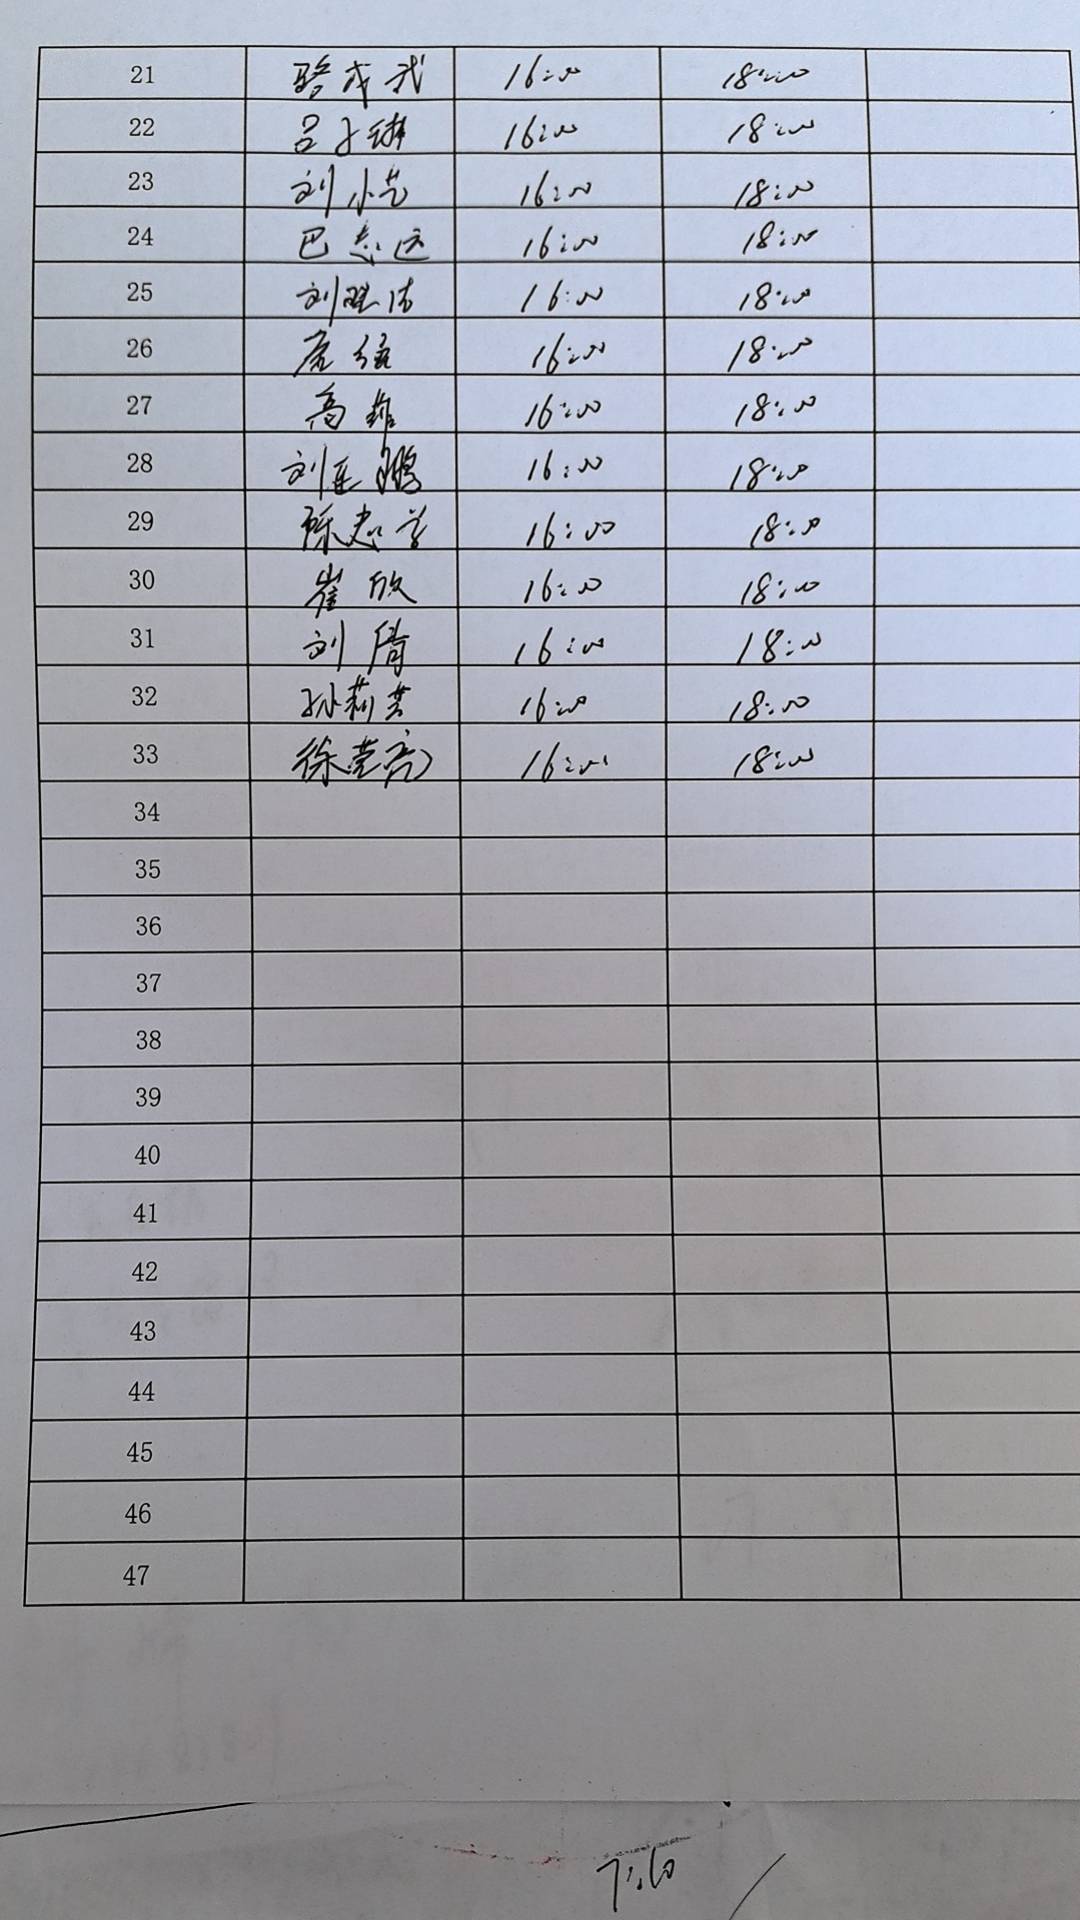 21 骆成武 16:00 18:00
22 吕子琳 16:00 18:00
23 刘小艺 16:00 18:00
24 巴志远 16:00 18:00
25 刘 16:00 18:00
26 16:00 18:00
27 高雄 16:00 18:00
28 刘连鹏 16:00 18:00
29 陈志 16:00 18:00
30 崔欣 16:00 18:00
31 刘倩 16:00 18:00
32 孙莉芸 16:00 18:00
33 徐莹亮 16:00 18:00
34
35
36
37
38
39
40
41
42
43
44
45
46
47